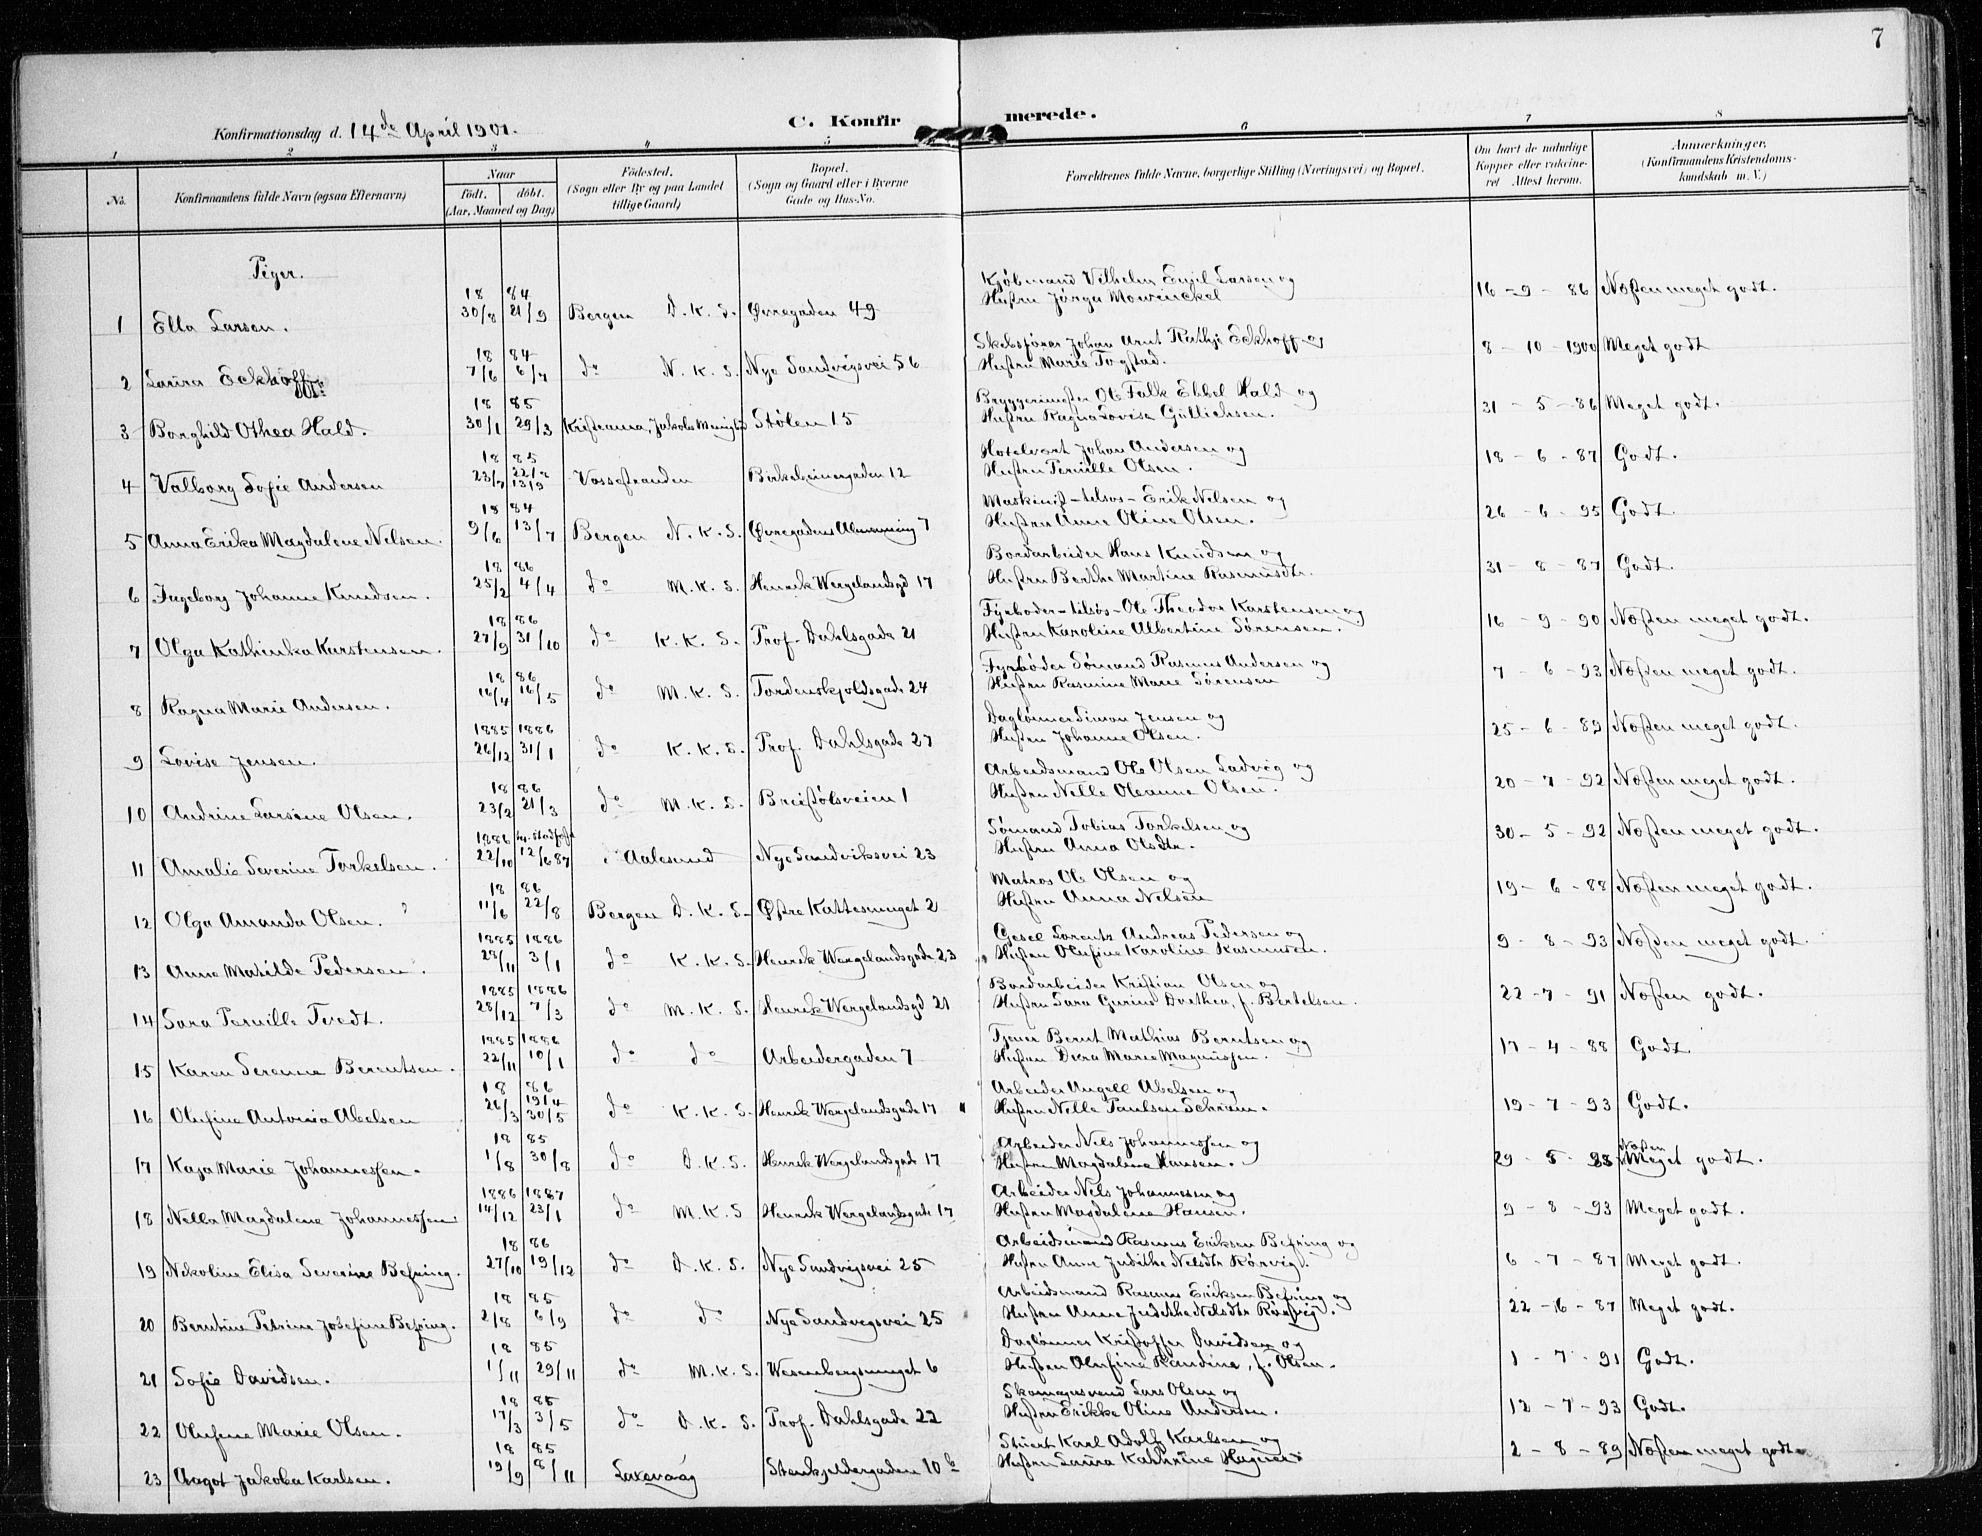 7
Konfirmationsdag d. 14de April 1901.
C. Konfirmerede.
1 2 3 4 5 6 7 8
No.
Konfirmandens fulde Navn (ogsaa Efternavn)
Naar
født. døbt.
(Aar, Maaned og Dag)
Fødested.
(Sogn eller By og paa Landet
tillige Gaard)
Bopæl.
(Sogn og Gaard eller i Byerne
Gade og Hus-No.
Forældrenes fulde Navne, borgerlige Stilling (Næringsvei) og Bopæl.
Om havt de naturlige
Kopper eller vakcineret
Attest herom.
Anmærkninger.
(Konfirmandens Kristendomskundskab
m. V.)
Piger.
18 84 Kjøbmand Vilhelm Emil Larsen og
1 Ella Larsen. 30/8 21/9 Bergen D. K. S. Øvregaden 49 Hustru Jørga Mowinckel 16 - 9 - 86 Næsten meget godt.
18 84 Skibsfører Johan Arnt Rathje Eckhoff og
2 Laura Eckhoff 7/6 6/7 do N. K. S. Nye Sandvigsvei 56 Hustru Marie Togstad. 8 - 10 - 1900 Meget godt
18 85 Bryggerimester Ole Falk Ebbel Hald og
3 Borghild Othea Hald. 30/1 29/3 Kristiania, Jakobs Menighed Stølen 15 Hustru Ragna Lovisa Gullichsen. 31 - 5 - 86 Meget godt.
18 85 Hotelvært Johan Andersen og
4 Valborg Sofie Andersen 23/7 22/8 13/9 Vossestranden Birkebeinergaden 12 Hustru Pernille Olsen. 18 - 6 - 87 Godt.
18 84 Maskinist - tilsøs - Erik Nelsen og
5 Anna Erika Magdalene Nelsen. 9/6 13/7 Bergen N. K. S. Øvregadens Almenning 7 Hustru Anne Oline Olsen. 26 - 6 - 95 Godt.
18 86 Bordarbeider Hans Knudsen og
6 Ingeborg Johanne Knudsen. 25/2 4/4 do M. K. S. Henrik Wergelandsgd 17 Hustru Berthe Martine Rasmusdtr. 31 - 8 - 87 Godt.
18 86 Fyrbøder - tilsøs - Ole Theodor Karstensen og
7 Olga Kathinka Karstensen. 27/9 31/10 do K. K. S. Prof. Dahlsgade 21 Hustru Karoline Albertine Sørensen. 16 - 9 - 90 Næsten meget godt.
18 86 Fyrbøder Sømand Rasmus Andersen og
8 Ragna Marie Andersen. 16/4 16/5 do M. K. S. Tordenskjoldsgade 24 Hustru Rasmine Marie Sørensen 7 - 6 - 93 Næsten meget godt.
1885 1886 Dagløner Simon Jensen og
9 Lovise Jensen. 26/12 31/1 do K. K. S. Prof. Dahlsgade 27 Hustru Johanne Olsen. 25 - 6 - 89 Næsten meget godt.
18 86 Arbeidsmand Ole Olsen Ladvig og
10 Andrine Larsine Olsen. 23/2 21/3 do M. K. S. Breistølsveien 1 Hustru Nelle Oleanne Olsen. 20 - 7 - 92 Næsten meget godt.
1886 hj. stadfæst Sømand Tobias Torkelsen og
11 Amalie Severine Torkelsen. 22/10 12/6 87 Aalesund Nye Sandviksvei 23 Hustru Anna Olsdtr. 30 - 5 - 92 Næsten meget godt.
18 86 Matros Ole Olsen og
12 Olga Amanda Olsen. 11/6 22/8 Bergen D. K. S. Østre Kattesmuget 2 Hustru Anna Nelsen 19 - 6 - 88 Næsten meget godt.
1885 1886 Gesel Lorentz Andreas Pedersen og
13 Anne Matilde Pedersen. 29/11 3/1 do K. K. S. Henrik Wergelandsgade 23 Hustru Olufine Karoline Rasmussen. 9 - 8 - 93 Næsten meget godt.
1885 1886 Bordarbeider Kristian Olsen og
14 Sara Pernille Tvedt. 28/12 7/3 do M. K. S. Henrik Wergelandsgd 21 Hustru Sara Gurine Dorthea, f. Bertelsen. 22 - 7 - 91 Næsten godt.
1885 1886 Tjener Bernt Mathias Berntsen og
15 Karen Serenne Berentsen. 22/11 10/1 do do Arbeidergaden 7 Hustru Dera Marie Magnussen. 17 - 4 - 88 Godt
18 86 Arbeider Angell Abelsen og
16 Olufine Antonia Abelsen 26/3 19/4 30/5 do K. K. S. Henrik Wergelandsgade 17 Hustru Nelle Paulsen Schram. 19 - 7 - 93 Godt.
18 85 Arbeider Nils Johannessen og
17 Kaja Marie Johannessen. 1/8 30/8 do D. K. S. Henrik Wergelandsgade 17 Hustru Magdalene Hansen. 29 - 5 - 93 Næsten Meget godt.
1886 1887 Arbeider Nils Johannessen og
18 Nella Magdalene Johannessen 14/12 23/1 do M. K. S Henrik Wergelandsgade 17 Hustru Magdalene Hansen. 9 - 8 - 93 Meget godt.
18 86 Arbeidsmand Rasmus Eriksen Befring og
19 Nikoline Elisa Severine Befring. 27/10 19/12 do D. K. S. Nye Sandvigsvei 25 Hustru Anne Judithe Nelsdtr Rørvig. 6 - 7 - 87 Meget godt.
18 85 Arbeidsmand Rasmus Eriksen Befring og
20 Berntine Petrine Josefine Befring. 2/8 6/9 do do Nye Sandvigsvei 25 Hustru Anne Judithe Nelsdtr Rørvig. 22 - 6 - 87 Meget godt.
18 85 Dagløner Kristoffer Davidsen og
21 Sofie Davidsen. 1/11 29/11 do M. K. S. Wesenbergsmuget 6 Hustru Olufine Randine, f. Olsen. 1 - 7 - 91 Godt.
18 85 Skomagersvend Lars Olsen og
22 Olufine Marie Olsen. 17/3 3/5 do D. K. S. Prof. Dahlsgade 22 Hustru Erikke Oline Andersen. 12 - 7 - 93 Godt.
18 85 Stuert Karl Adolf Karlsen og
23 Aagot Jakoba Karlsen. 19/9 8/11 Laxevaag Stenkjeldergaden 10 b Hustru Laura Kathrine 2 - 8 - 89 Næsten meget godt.